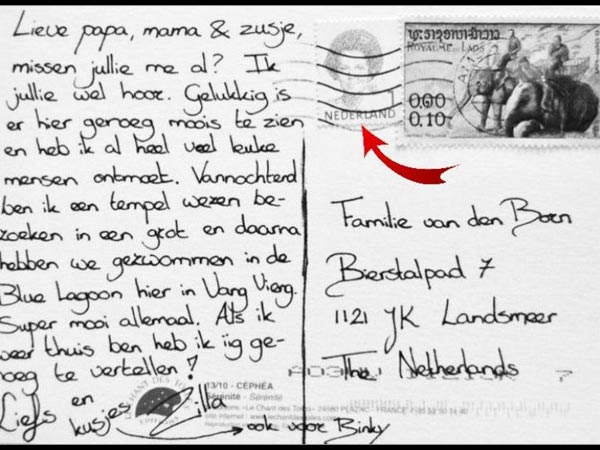 Lieve papa, mama & zusje,
missen jullie me al? Ik
jullie wel hoor. Gelukkig is
er hier genoeg moois te zien
en heb ik al heel veel leuke
mensen ontmoet. Vanochtend
ben ik een tempel wezen be-
zoeken in een grot en daarna
hebben we gezwommen in de
Blue Lagoon hier in Vang Vieng.
Super mooi allemaal. Als ik
weer thuis ben heb ik iig ge-
noeg te vertellen!
Liefs en
kusjes Zilla
→ ook voor Binky
NEDERLAND
ROYAUME LAOS
0.00
0.10
Familie van den Born
Bierstalpad 7
1121 JK Landsmeer
The Netherlands
13/10 - CÉPHÉA
Sérénité - Sérénité
Editions «Le Chant des Toiles» 24580 PLAZAC - FRANCE